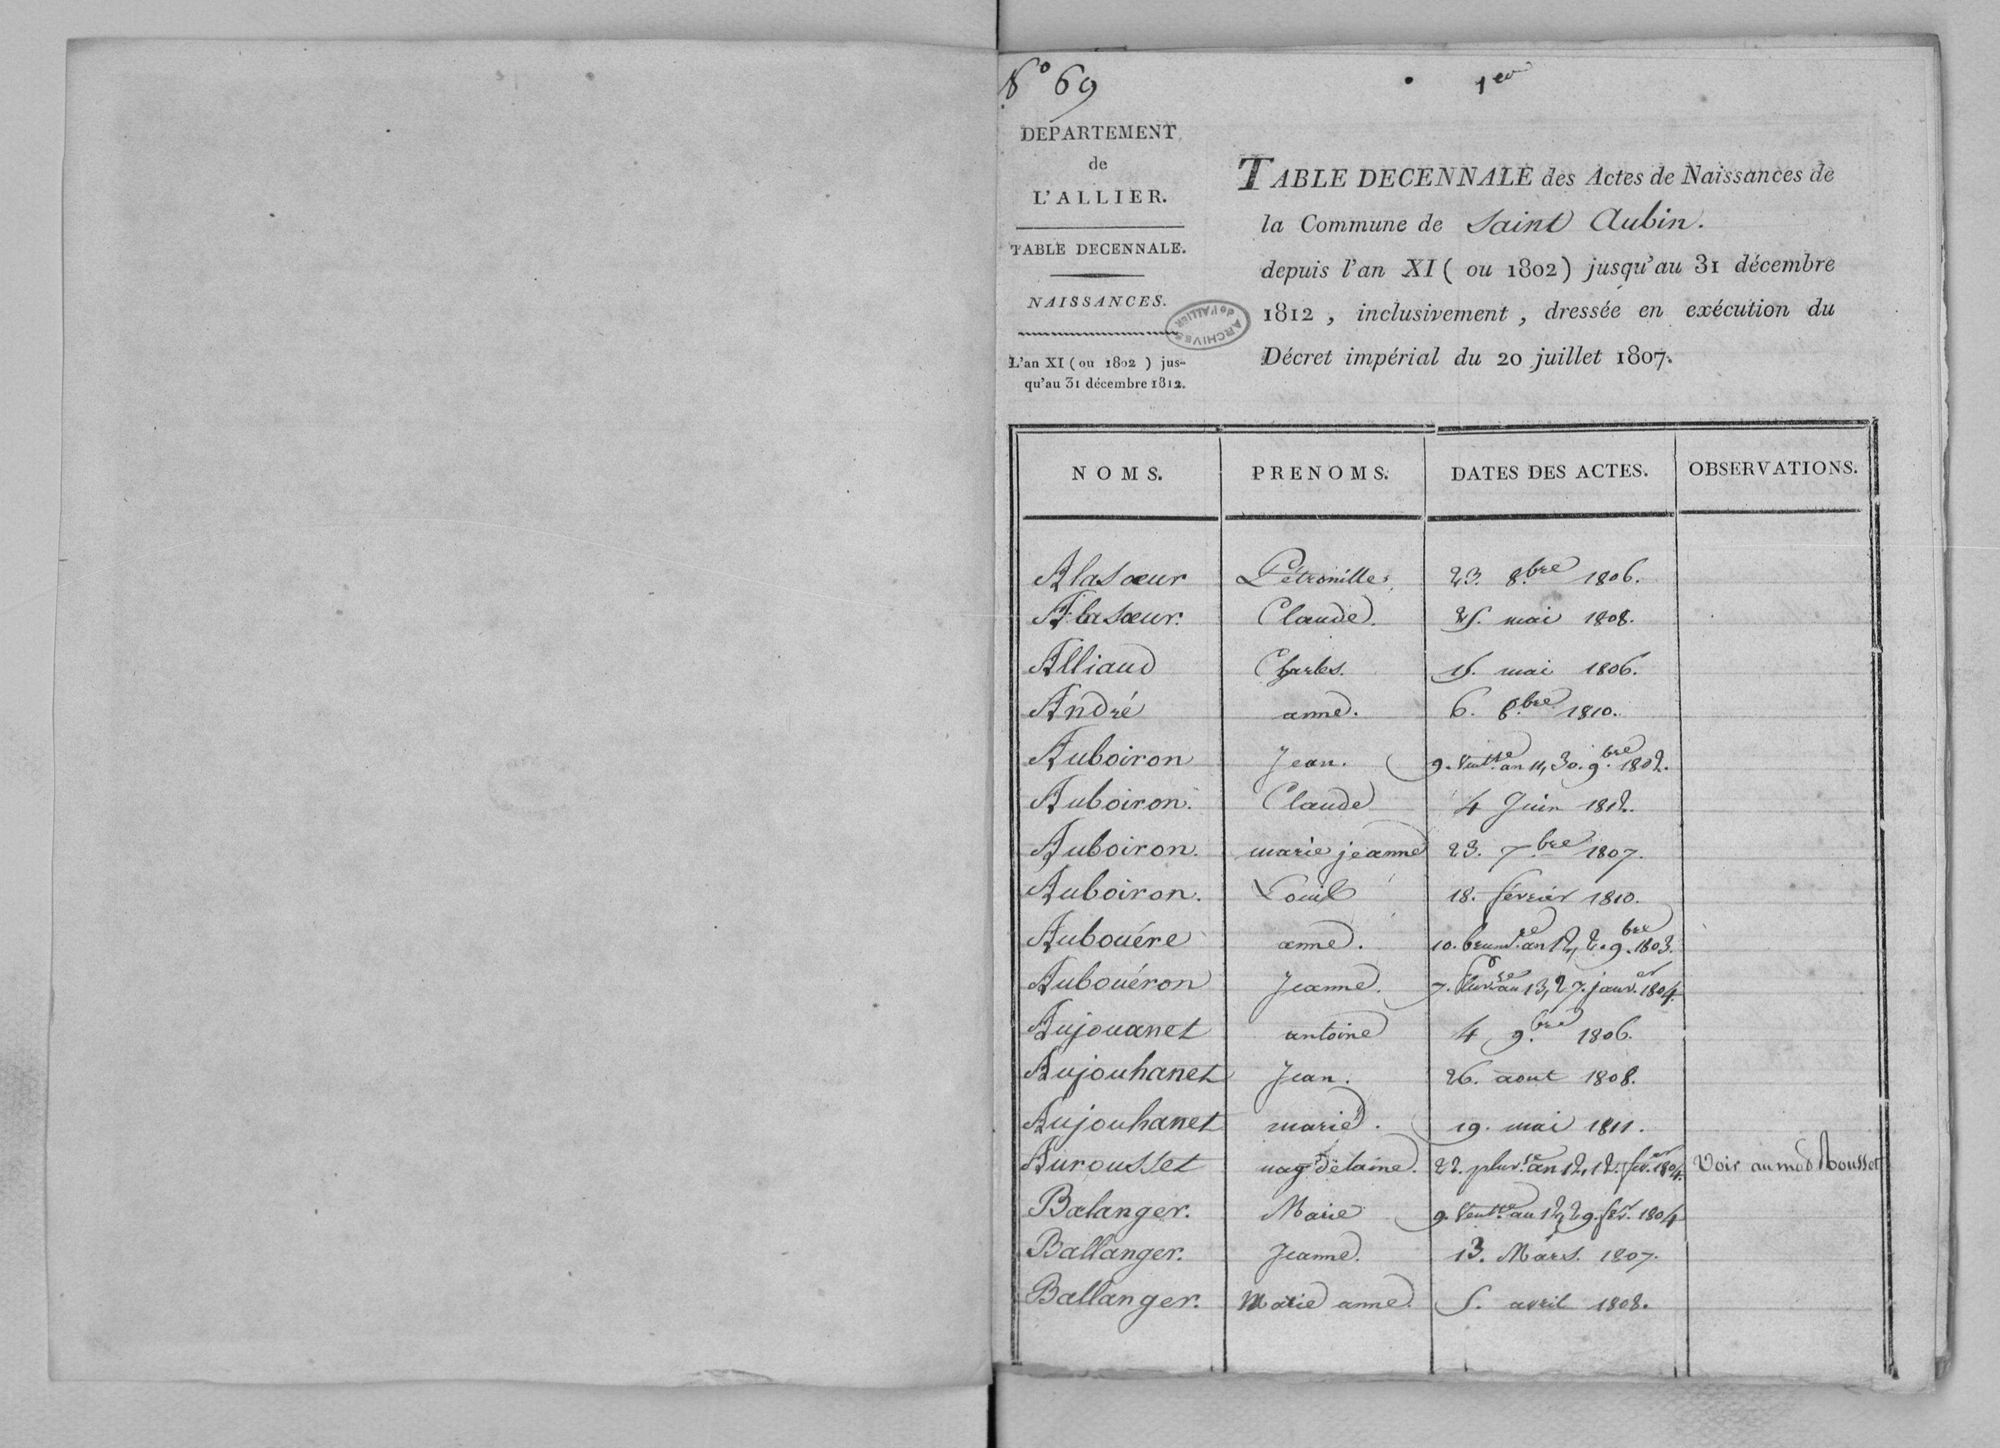 N° 69
1er
DEPARTEMENT
de
L'ALLIER.
TABLE DECENNALE.
NAISSANCES.
L'an XI (ou 1802) jus-
qu'au 31 décembre 1812.
ARCHIVES
de l'ALLIER
TABLE DECENNALE des Actes de Naissances de
la Commune de Saint Aubin.
depuis l'an XI (ou 1802) jusqu'au 31 décembre
1812, inclusivement, dressée en exécution du
Décret impérial du 20 juillet 1807.
NOMS. PRENOMS. DATES DES ACTES. OBSERVATIONS.
Alasœur Pétronille 23. 8.bre 1806.
Alasœur. Claude. 25. mai 1808.
Alliaud Charles. 15. mai 1806.
André anne. 6. 8.bre 1810.
Auboiron Jean. 9. Vent.se an 11, 30. 9.bre 1802.
Auboiron. Claude 4 Juin 1812.
Auboiron. marie jeanne 23. 7.bre 1807.
Auboiron. Louis 18. février 1810.
Aubouére anne. 10. brum.re an 12, 2. 9.bre 1803.
Aubouéron Jeanne. 7. pluv.se an 13, 27. janv.er 1804.
Aujouanet antoine 4 9.bre 1806.
Aujouhanet Jean. 26. aout 1808.
Aujouhanet marie. 19. mai 1811.
Aurousset magdelaine. 22. pluv.se an 12, 12. fév.er 1804. Voir au mod Rousset
Balanger. Marie 9. Vent.se an 12, 29. fév.er 1804
Ballanger. Jeanne. 13. Mars. 1807.
Ballanger. Marie anne. 5. avril 1808.